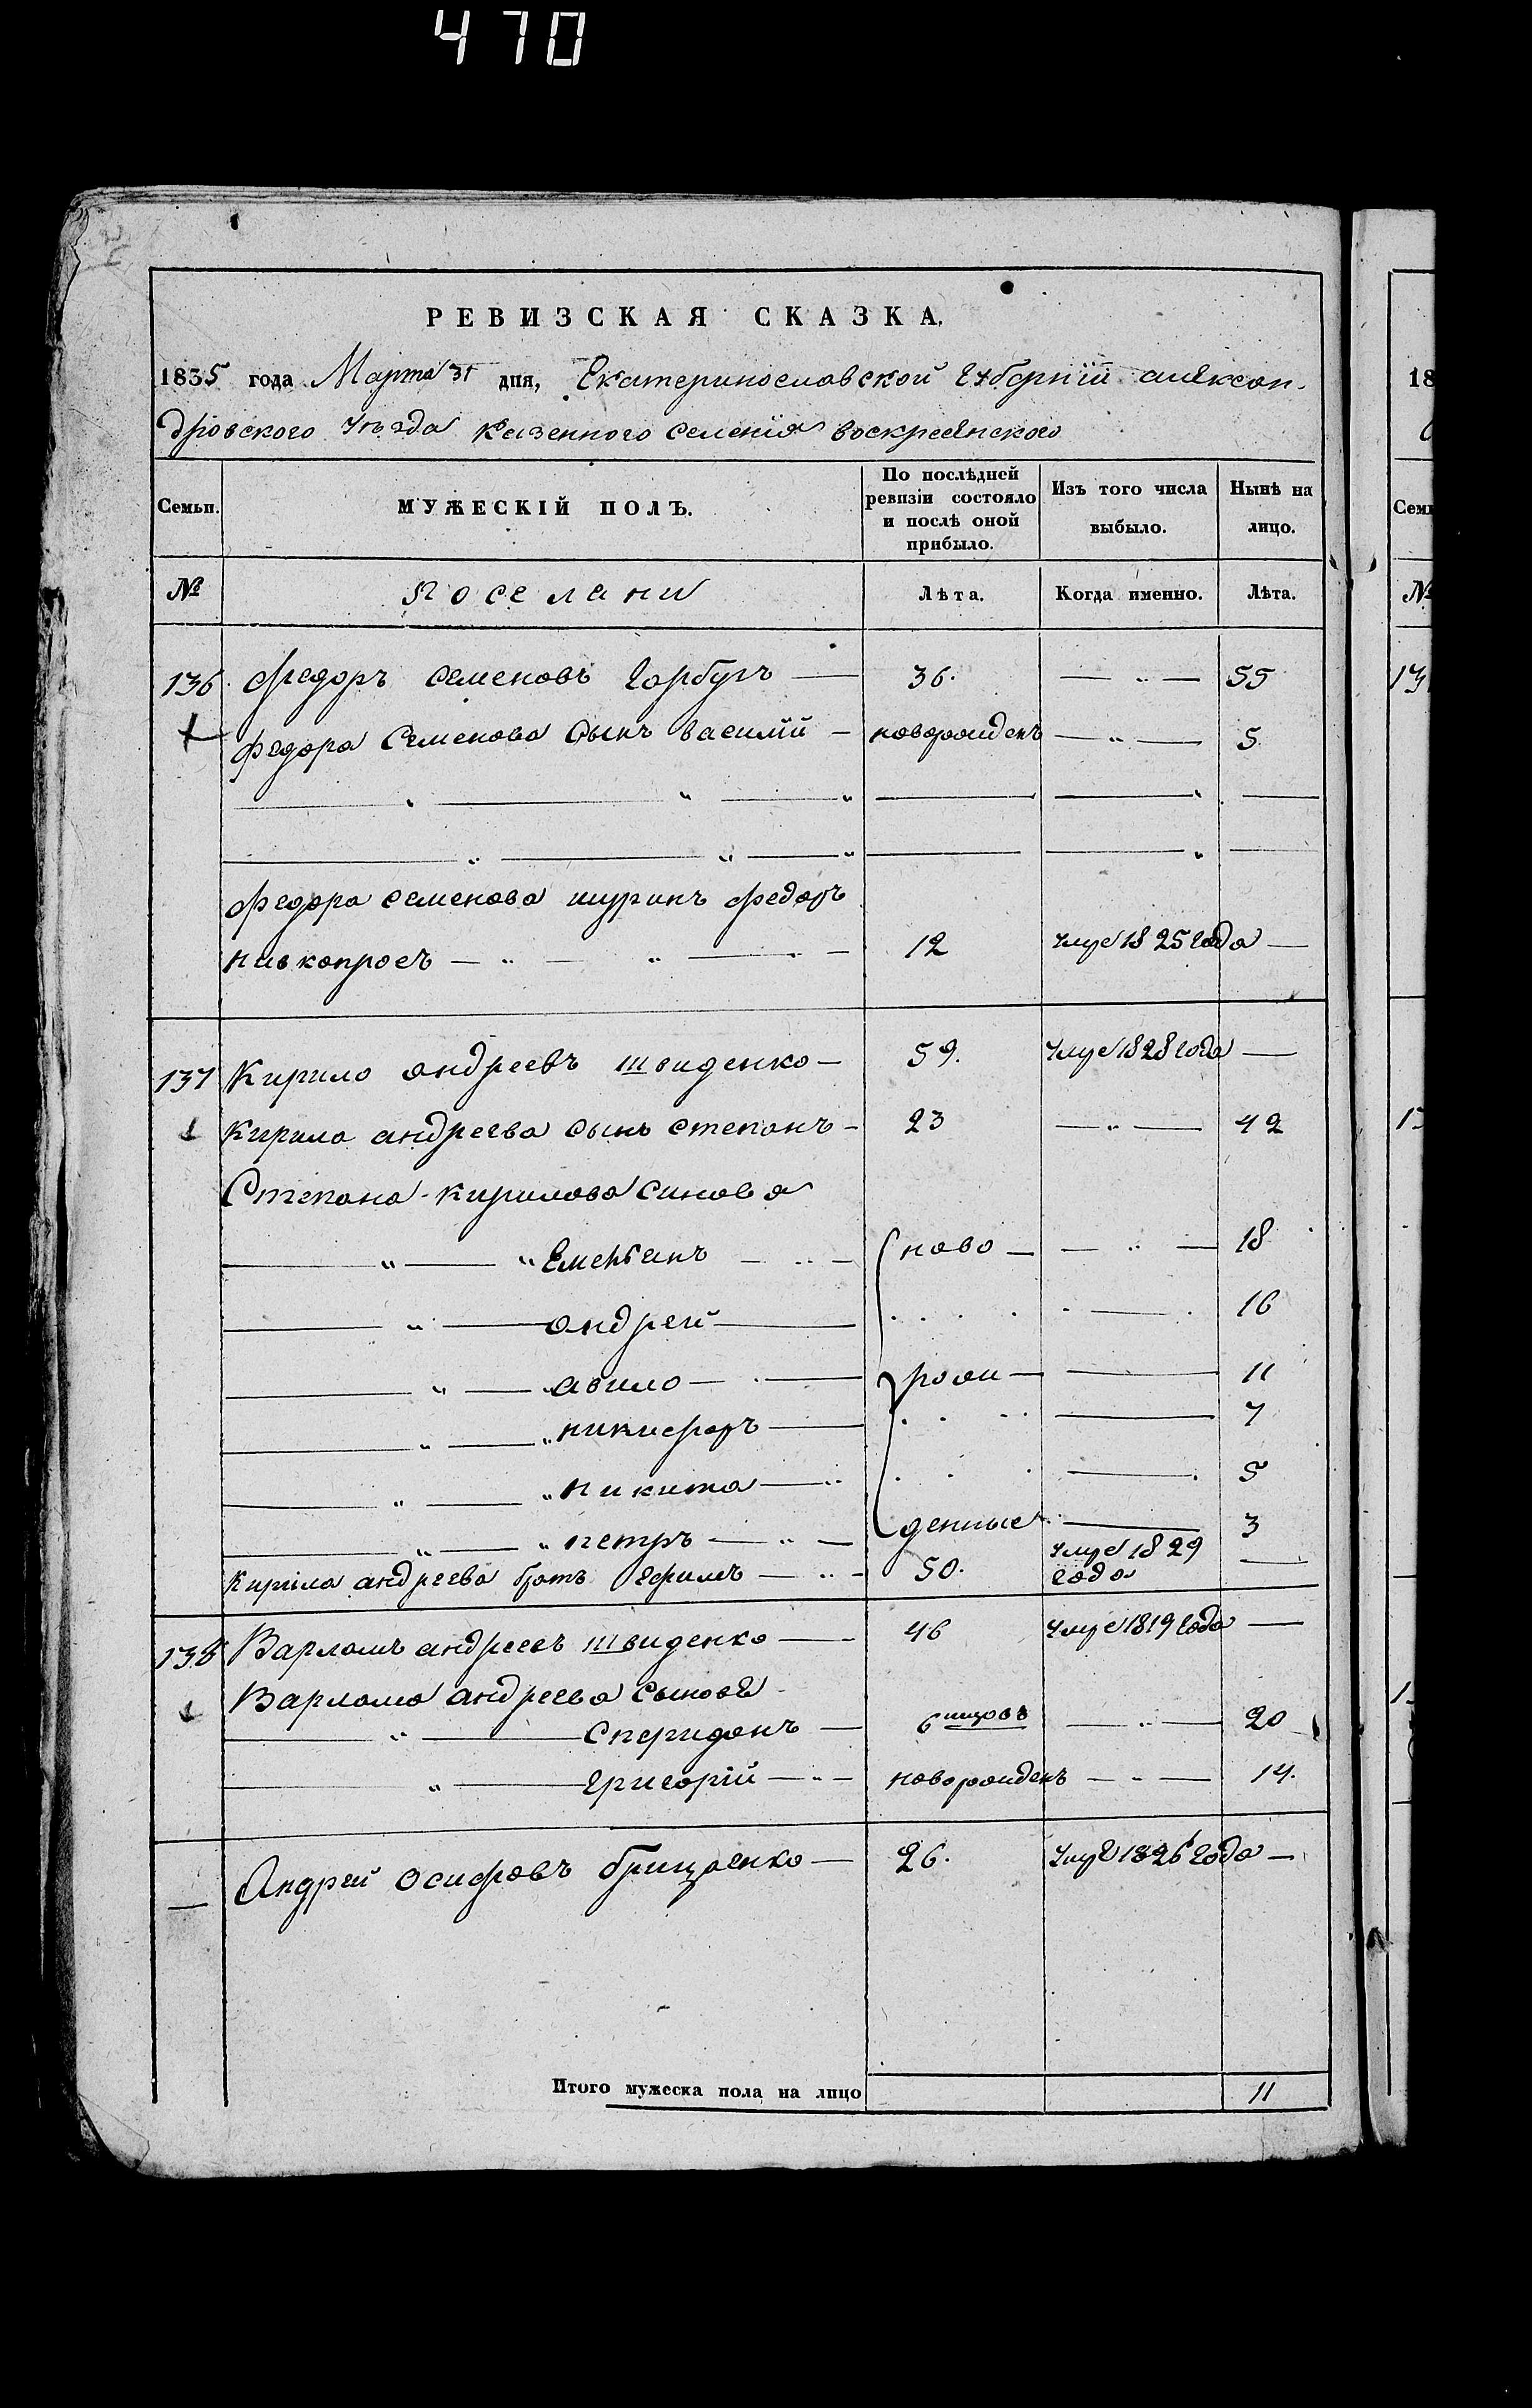 470
24
РЕВИЗСКАЯ СКАЗКА.
1835 года Марта 31 дня, Екатеринославской губернїи алексан-
дровского уѣзда казенного селенїя воскресенского
Семьи. МУЖЕСКІЙ ПОЛЪ. По послѣдней ревизіи состояло и послѣ оной прибыло. Изъ того числа выбыло. Нынѣ на лицо.
№ поселани Лѣта. Когда именно. Лѣта.
136. Федоръ семеновъ горбузъ — 36. — „ — 55
федора Семенова сынъ василїй — новорожденъ — „ — 5.
федора семенова шуринъ федоръ
12 умре 1825 года —
137 Кирило андреевъ швиденко — 59. умре 1828 года —
кирила андреева сынъ степанъ — 23 — „ — 42
Степана кирилова синовя
„ — „ Емельянъ — ново — — „ — 18
„ — андрей — 16
„ — авило — рож — — 11
„ — „ никифоръ — 7
„ — „ никита — 5
„ — „ петръ — денные — 3
кирила андреева братъ Ефимъ — 50. умре 1829 года —
138 Варламъ андреевъ швиденко — 46 умре 1819 года —
Варлама андреева сыновя
„ — Спиридонъ — 6 — „ — 20
„ — григорїй — новорожденъ — „ — 14.
— Андрей осифовъ грицаенко — 26. умре 1826 года —
Итого мужеска пола на лицо 11